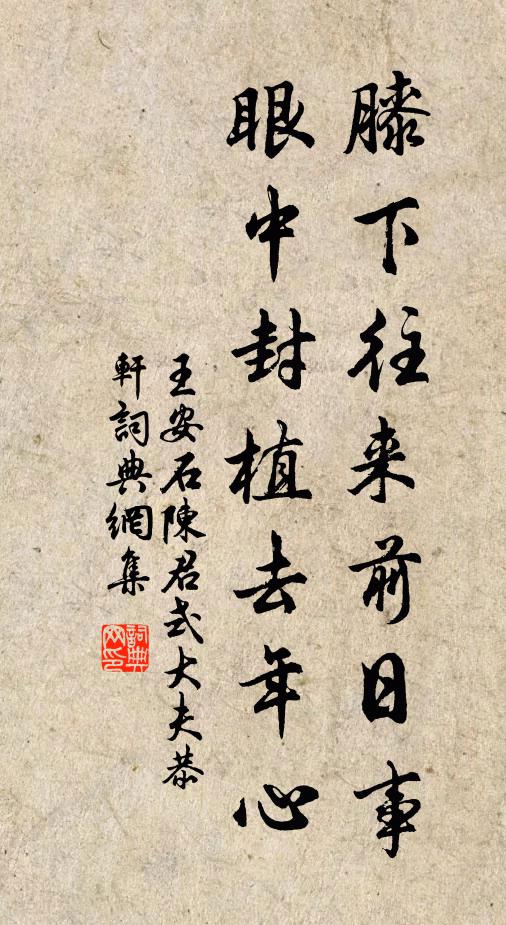 膝下往来前日事
眼中封植去年心
王安石陳君式大夫恭
軒詞典網集
詞典
网印